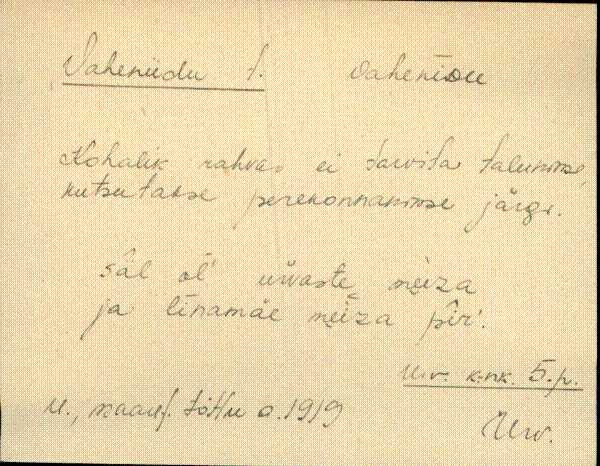 Vaheniidu t. vahenīdu
Kohalik rahvas ei tarvita talunime,
kutsutakse perekonnanime järgi.
sāl ol' urvaste meiza
ja linamäe meiza pīr'.
Urv. k.nk. 5.p.
U., maaref. tõttu a. 1919
Urv.